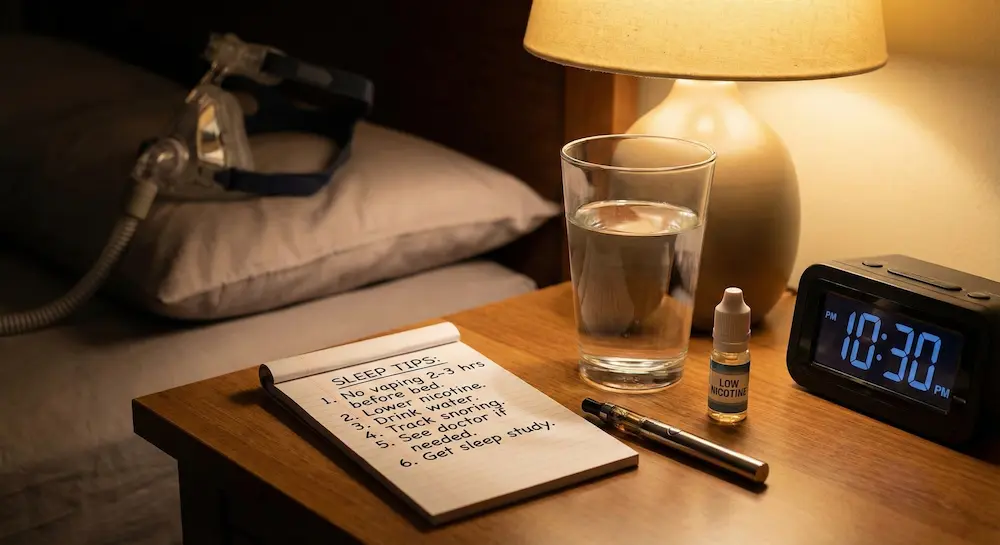 SLEEP TIPS:
1. No vaping 2-3 hrs
before bed.
2. Lower nicotine.
3. Drink water.
4. Track snoring.
5. See doctor if
needed.
6. Get sleep study.
LOW
NICOTINE
PM 10:30 PM